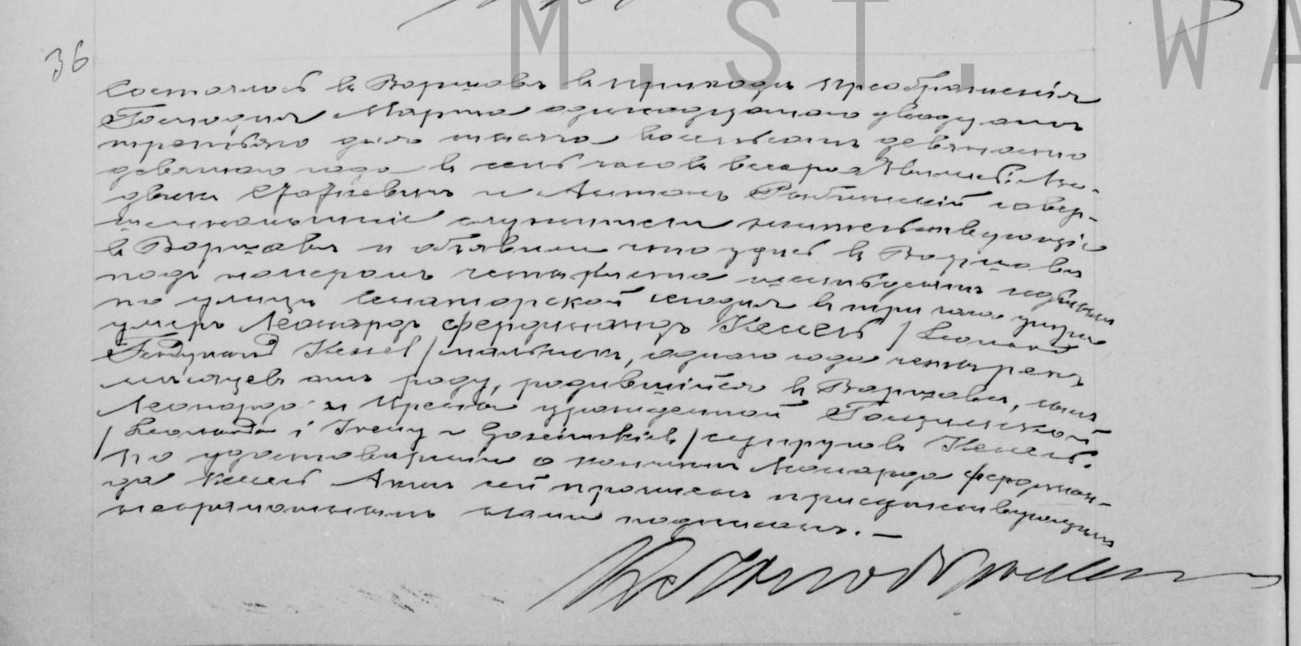 M. ST. WA
36
Состоялось въ Варшавѣ въ приходѣ Преображенія
Господня Марта одиннадцатаго двадцать
третьяго дня тысяча восемьсотъ девяносто
девятаго года въ семь часовъ вечера Явились
и Антонъ совер-
шеннолѣтніе служители жительствующіе
въ Варшавѣ и объявили что здѣсь въ Варшавѣ
подъ номеромъ четыреста шестьдесятъ
по улицѣ Сенаторской сего дня въ три часа утра
умеръ Леонардъ Фердинандъ Кессель /Leonard
Ferdynand Kessel/ мальчикъ, одного года четырехъ
мѣсяцевъ отъ роду, родившійся въ Варшавѣ, сынъ
Леонарда и Ирены урожденной Госцимской
/Leonarda i Ireny z Gościmskich/ супруговъ Кессель.
По удостовѣреніи о кончинѣ Леонарда Фердинан-
да Кессель Актъ сей прочитанъ присутствующимъ
неграмотнымъ нами подписанъ.—